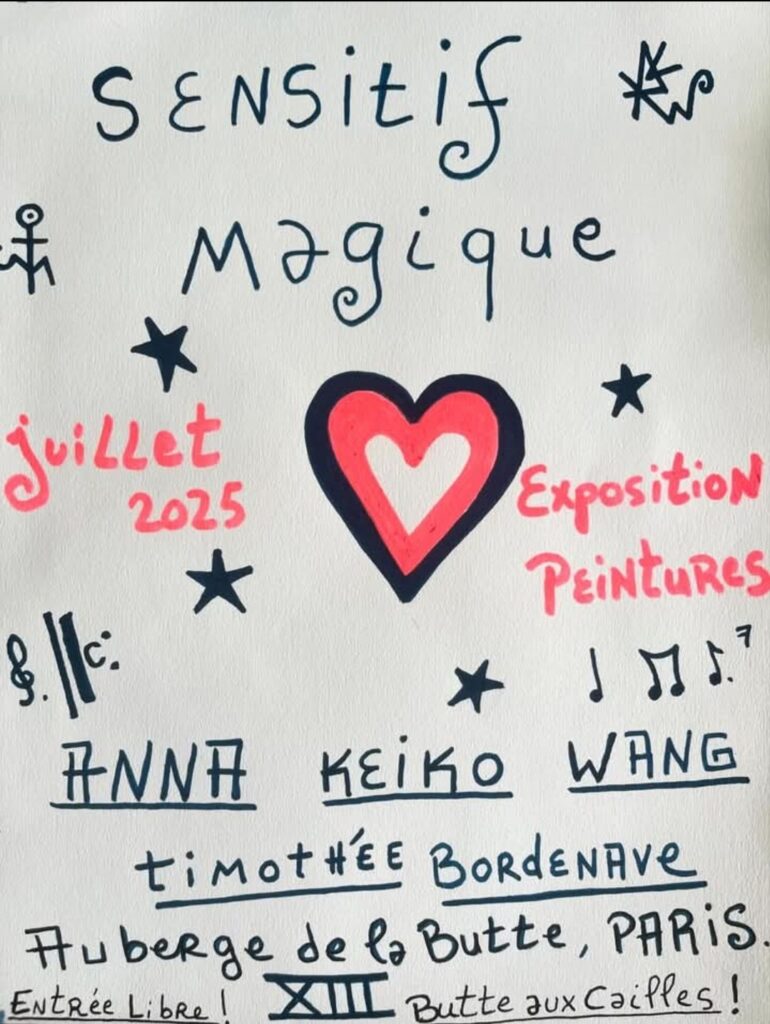 Sensitif
Magique
juillet
2025
Exposition
Peintures
ANNA KEIKO WANG
timothée Bordenave
Auberge de la Butte, PARIS.
Entrée Libre ! XIII Butte aux Cailles !